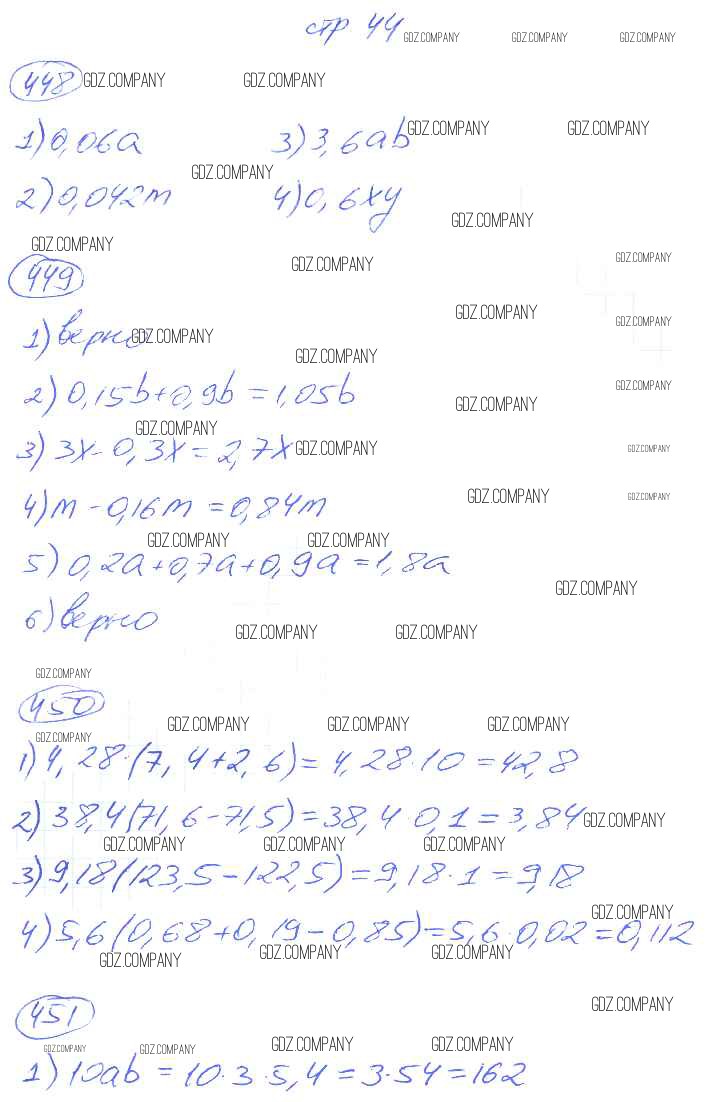 стр 44
GDZ.COMPANY GDZ.COMPANY GDZ.COMPANY
448 GDZ.COMPANY GDZ.COMPANY
1) 0,06a 3) 3,6ab GDZ.COMPANY GDZ.COMPANY
GDZ.COMPANY
2) 0,042m 4) 0,6xy
GDZ.COMPANY
GDZ.COMPANY
GDZ.COMPANY GDZ.COMPANY
449
GDZ.COMPANY GDZ.COMPANY
1) верно GDZ.COMPANY
GDZ.COMPANY
GDZ.COMPANY
2) 0,15b+0,9b=1,05b
GDZ.COMPANY
GDZ.COMPANY
3) 3x-0,3x=2,7x GDZ.COMPANY GDZ.COMPANY
GDZ.COMPANY GDZ.COMPANY
4) m-0,16m=0,84m
GDZ.COMPANY GDZ.COMPANY
5) 0,2a+0,7a+0,9a=1,8a
GDZ.COMPANY
6) верно
GDZ.COMPANY GDZ.COMPANY
GDZ.COMPANY
450
GDZ.COMPANY GDZ.COMPANY GDZ.COMPANY
GDZ.COMPANY
1) 4,28·(7,4+2,6)=4,28·10=42,8
2) 38,4(71,6-71,5)=38,4·0,1=3,84 GDZ.COMPANY
GDZ.COMPANY GDZ.COMPANY GDZ.COMPANY
3) 9,18(123,5-122,5)=9,18·1=9,18
GDZ.COMPANY
4) 5,6(0,68+0,19-0,85)=5,6·0,02=0,112
GDZ.COMPANY GDZ.COMPANY GDZ.COMPANY
GDZ.COMPANY
451
GDZ.COMPANY GDZ.COMPANY GDZ.COMPANY GDZ.COMPANY
1) 10ab=10·3·5,4=3·54=162